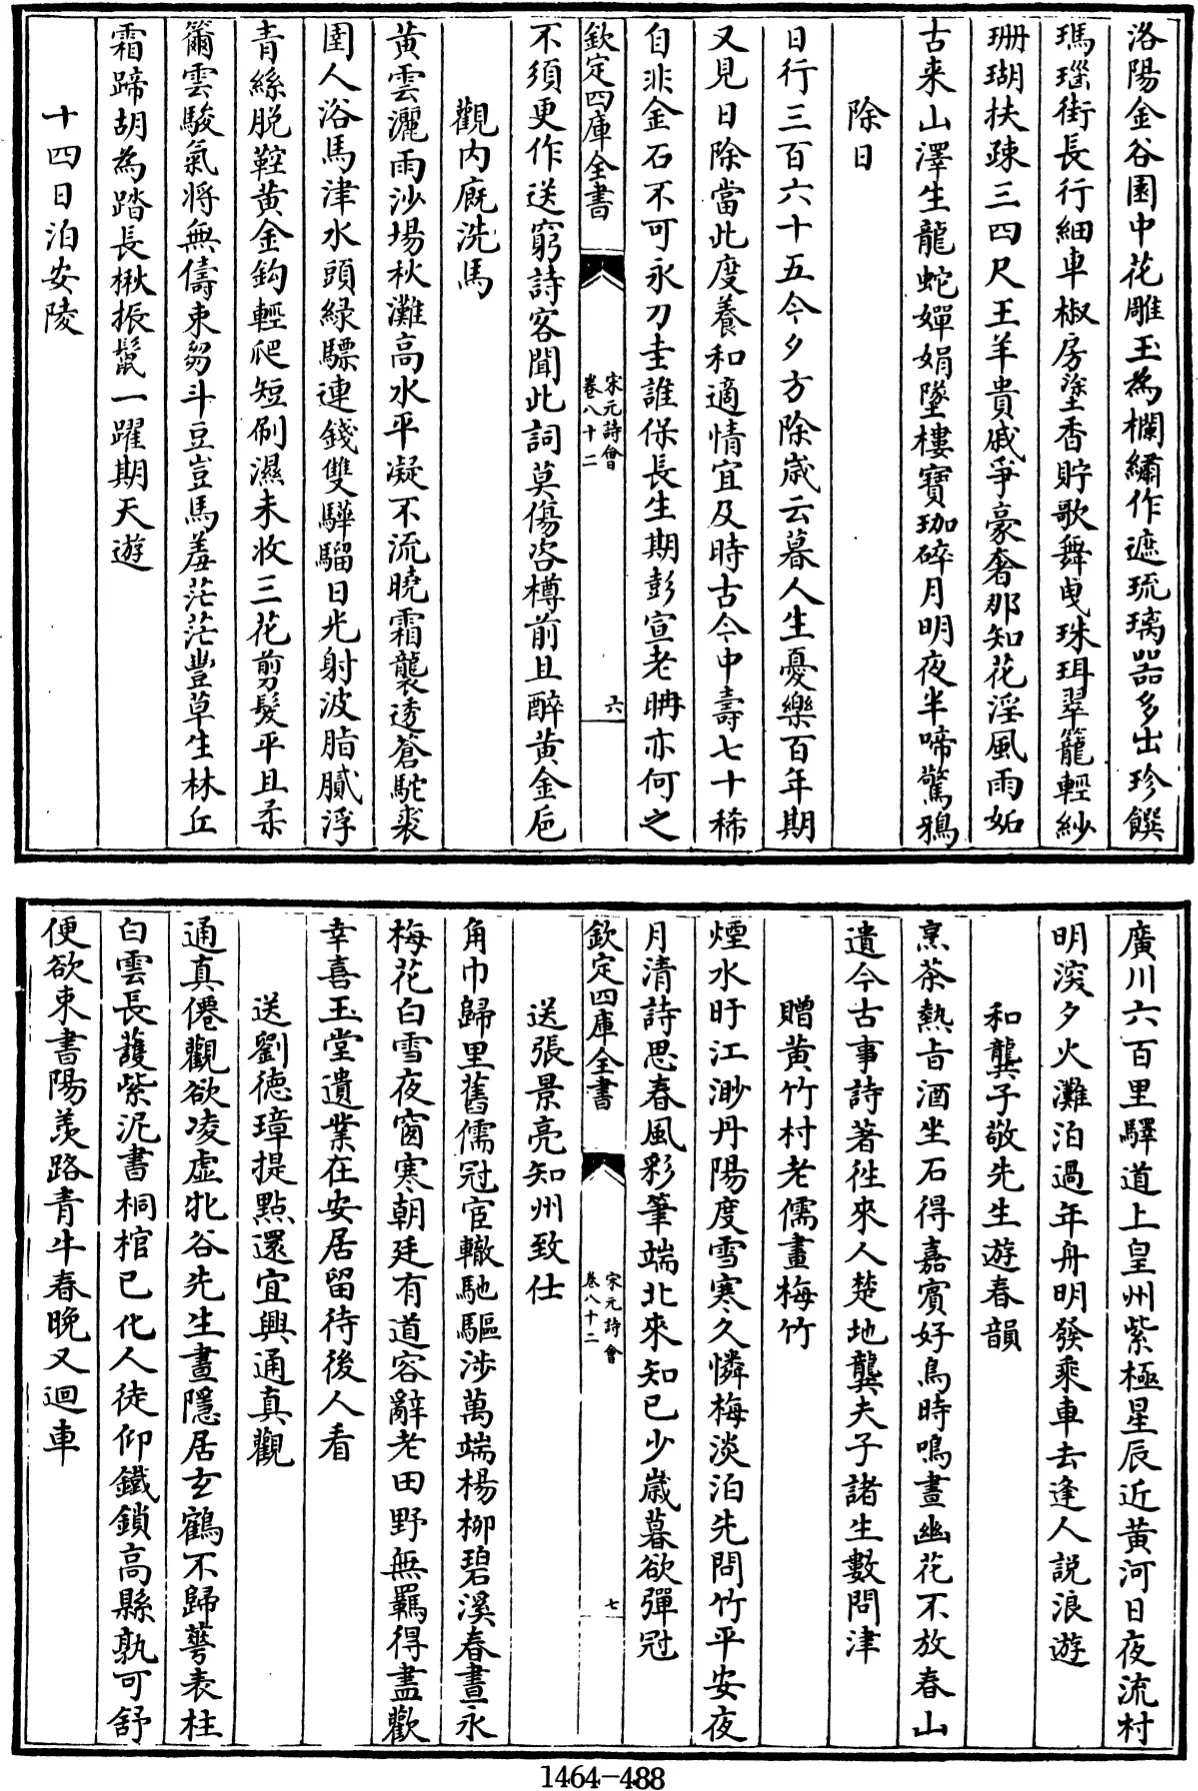 洛陽金谷園中花雕玉為欄繡作遮琉璃器多出珍饌
瑪瑙街長行細車椒房塗香貯歌舞曵珠珥翠籠輕紗
珊瑚扶疎三四尺王羊貴戚爭豪奢那知花淫風雨妬
古来山澤生龍蛇嬋娟墜樓寶珈碎月明夜半啼驚鴉
除日
日行三百六十五今夕方除嵗云暮人生憂樂百年期
又見日除當此度養和適情宜及時古今中壽七十稀
自非金石不可永刀圭誰保長生期彭宣老耼亦何之
欽定四庫全書
宋元詩會
卷八十二
六
不須更作送窮詩客聞此詞莫傷咨樽前且醉黄金巵
觀内廐洗馬
黄雲灑雨沙場秋灘高水平凝不流曉霜襲透蒼駝裘
圉人浴馬津水頭緑驃連錢雙驊騮日光射波脂膩浮
青絲脱鞚黄金鈎輕爬短刷濕未收三花剪髮平且柔
籋雲駿氣將無儔束芻斗豆豈馬羞茫茫豐草生林丘
霜蹄胡為踏長楸振鬣一躍期天遊
十四日泊安陵
廣川六百里驛道上皇州紫極星辰近黄河日夜流村
明湥夕火灘泊過年舟明發乘車去逢人説浪遊
和龔子敬先生遊春韻
烹茶熱㫖酒坐石得嘉賓好鳥時鳴晝幽花不放春山
遺今古事詩著徃來人楚地龔夫子諸生數問津
贈黄竹村老儒畫梅竹
煙水盱江渺丹陽度雪寒久憐梅淡泊先問竹平安夜
月清詩思春風彩筆端北來知已少嵗暮欲彈冠
欽定四庫全書
宋元詩會
卷八十二
七
送張景亮知州致仕
角巾歸里舊儒冠宦轍馳驅涉萬端楊柳碧溪春晝永
梅花白雪夜窗寒朝廷有道容辭老田野無羈得盡歡
幸喜玉堂遺業在安居留待後人看
送劉德璋提點還宜興通真觀
通真僊觀欲凌虚牝谷先生晝隱居玄鶴不歸蕚表柱
白雲長䕶紫泥書桐棺已化人徒仰鐵鎖高縣孰可舒
便欲束書陽羨路青牛春晚又迴車
1464-488